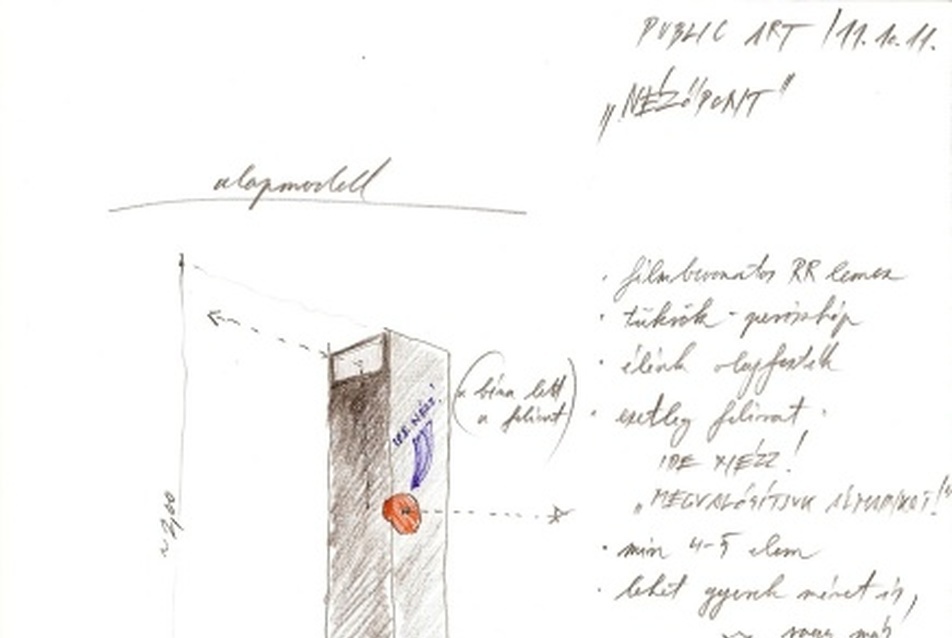 PUBLIC ART /11.10.11.
"NÉZŐPONT"
alapmodell
• filmbevonatos RR lemez
• tükrök - periszkóp
• élénk olajfesték
(bíra lett
a felirat)
• esetleg felirat.
IDE NÉZZ!
IDE NÉZZ!
"MEGVALÓSÍTJUK ÁLMAINKAT!"
~ 2,00
• min 4-5 elem
• lehet gyerek méret is,
vagy más